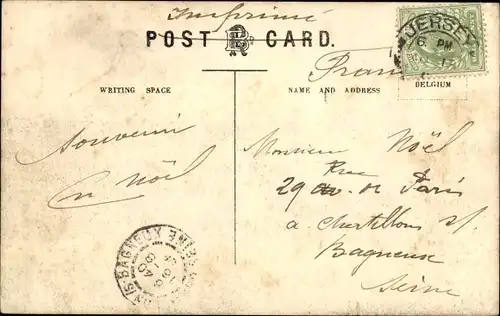 Imprimé
POST CARD.
JERSEY
6 PM
WRITING SPACE
NAME AND ADDRESS
BELGIUM
Souvenir
Noël
Monsieur Noël
Rue
29 de Paris
a Chatillons s/
Bagneux
Seine
BAGNEUX
SEINE